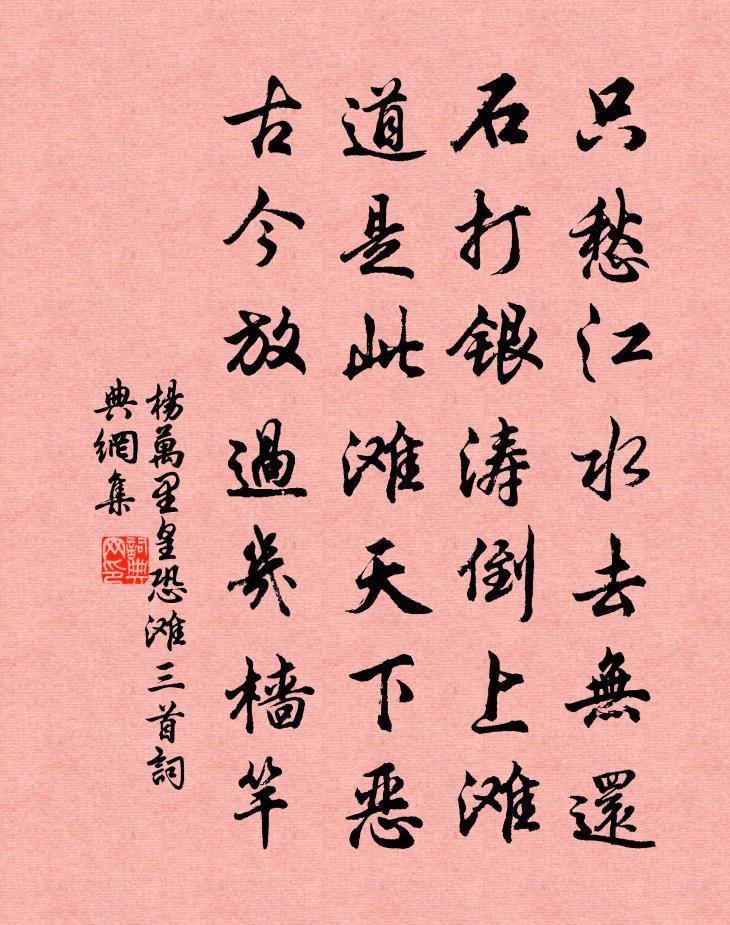 只愁江水去無還
石打銀涛倒上滩
道是此滩天下惡
古今放過幾樯竿
楊萬里皇恐滩三首詞
典網集
詞典
网印